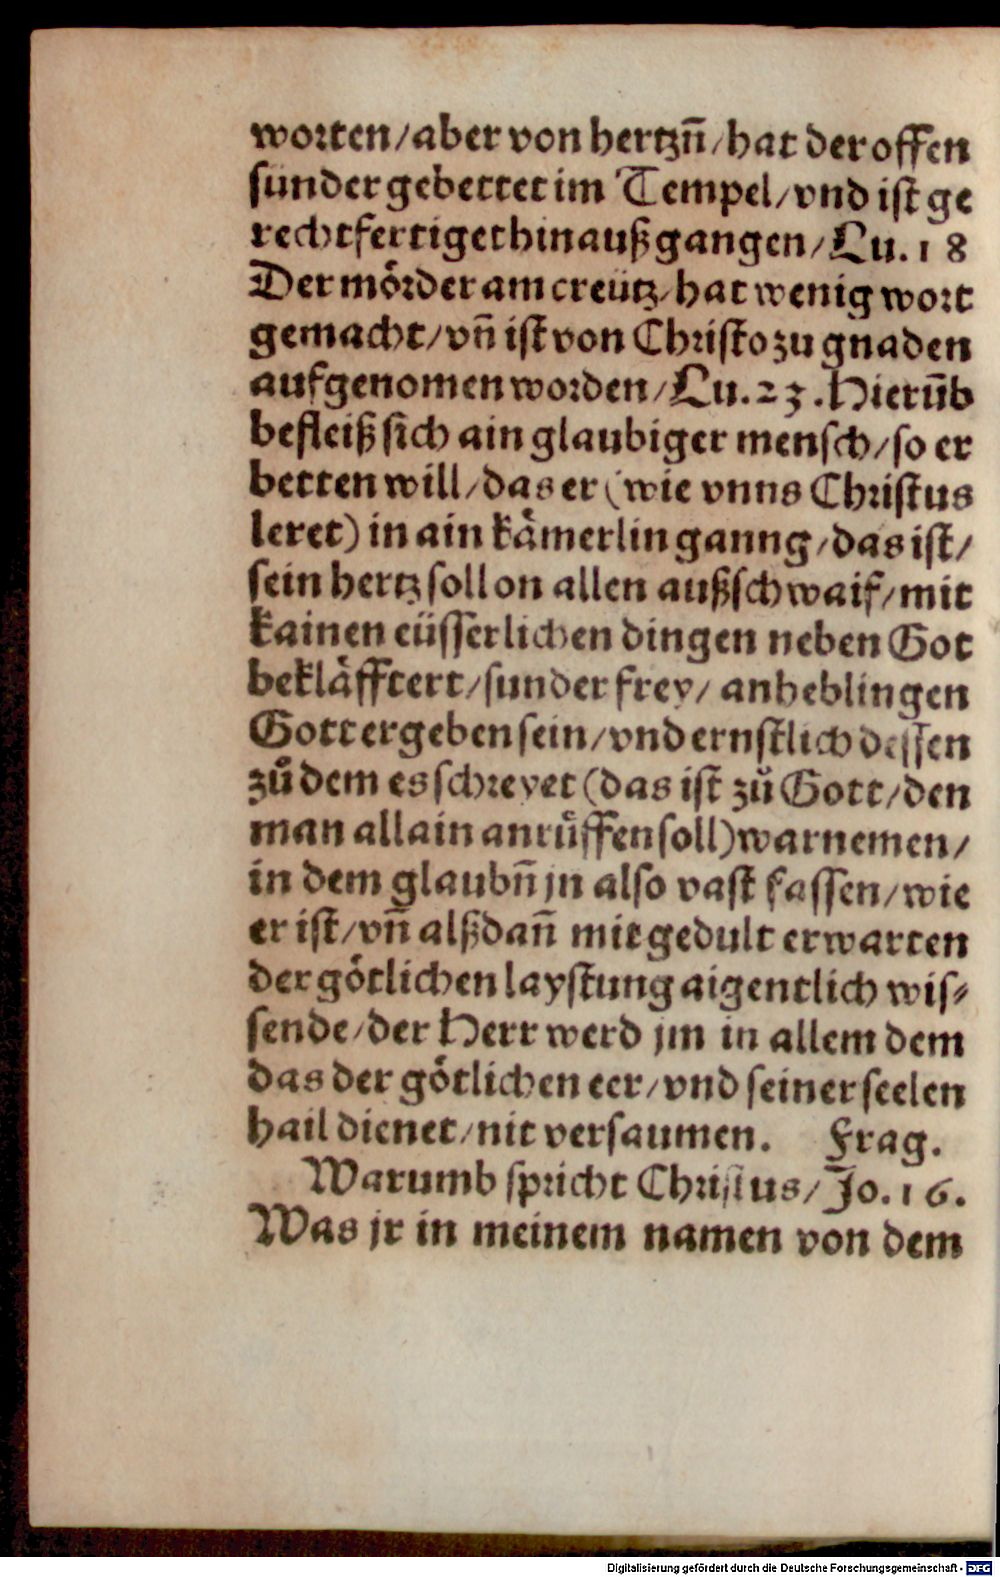 worten/aber von hertzn̄/hat der offen
sünder gebettet im Tempel/vnd ist ge
rechtfertiget hinauß gangen/Lu.18
Der mörder am creütz/hat wenig wort
gemacht/vn̄ ist von Christo zu gnaden
aufgenomen worden/Lu.23.Hierūb
befleiß sich ain glaubiger mensch/so er
betten will/das er (wie vnns Christus
leret) in ain kämerlin ganng/das ist/
sein hertz soll on allen außschwaif/mit
kainen eüsserlichen dingen neben Got
bekläfftert/sunder frey/ anheblingen
Gott ergeben sein/vnd ernstlich dessen
zuͦ dem es schreyet (das ist zuͦ Gott/den
man allain anruͤffen soll) warnemen/
in dem glaubn̄ jn also vast fassen/wie
er ist/vn̄ alßdan̄ mit gedult erwarten
der götlichen laystung aigentlich wis⸗
sende/der Herr werd jm in allem dem
das der götlichen eer/vnd seiner seelen
hail dienet/nit versaumen. Frag.
Warumb spricht Christus/Jo.16.
Was jr in meinem namen von dem
Digitalisierung gefördert durch die Deutsche Forschungsgemeinschaft - DFG